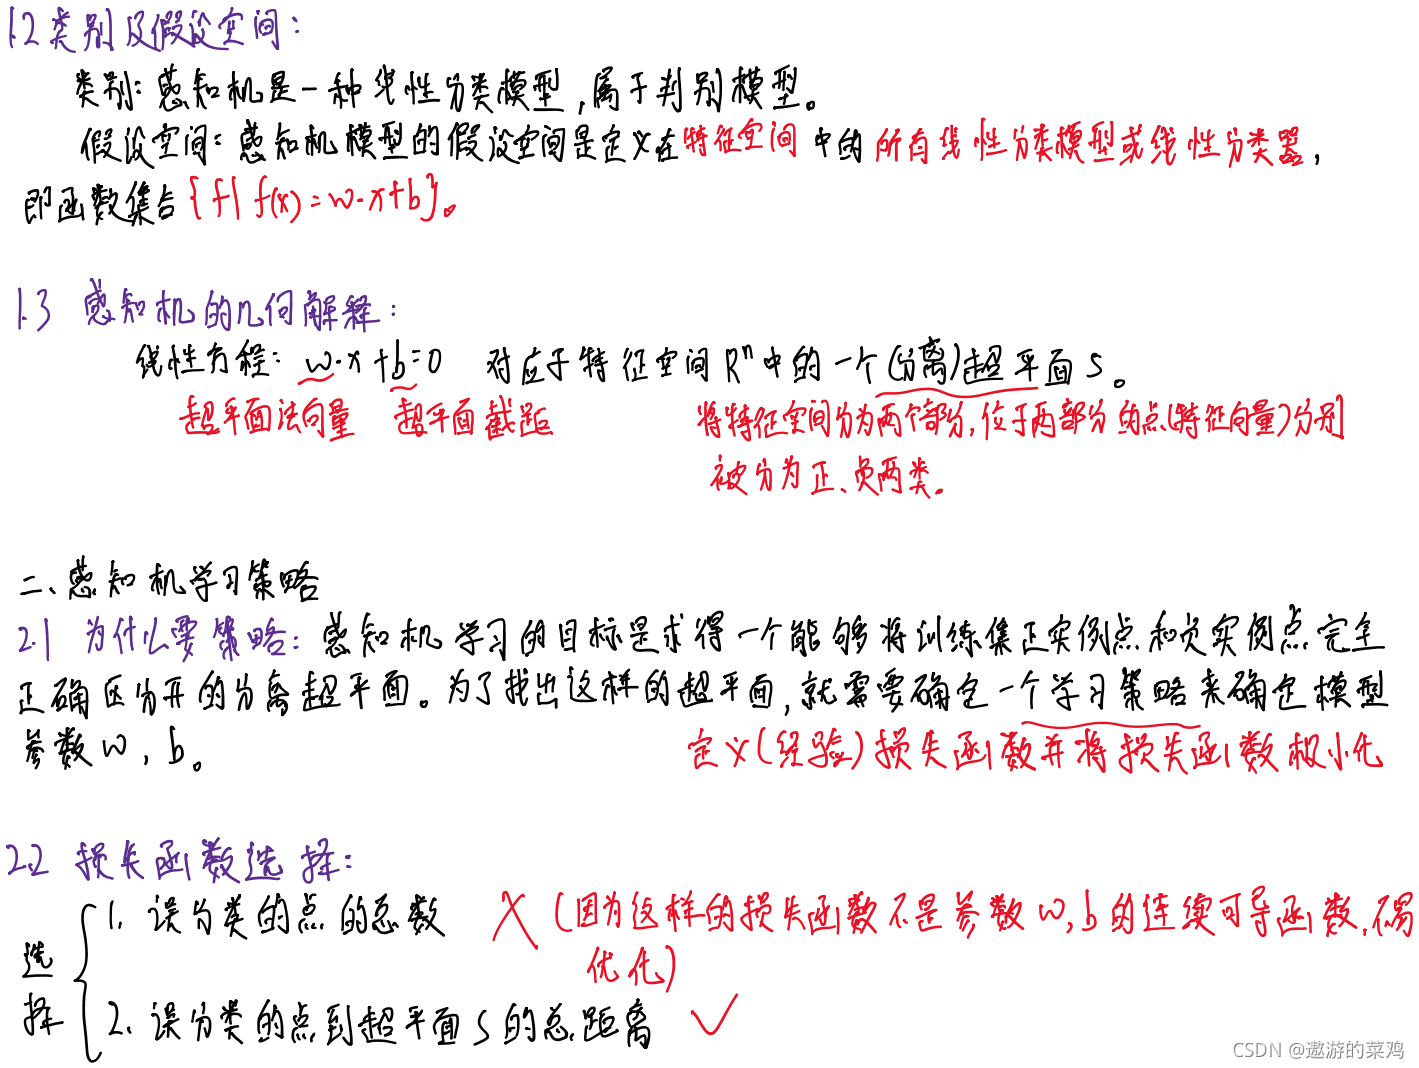 1.2 类别及假设空间：
类别：感知机是一种线性分类模型，属于判别模型。
假设空间：感知机模型的假设空间是定义在特征空间中的所有线性分类模型或线性分类器，
即函数集合{f|f(x)=w·x+b}。
1.3 感知机的几何解释：
线性方程：w·x+b=0 对应于特征空间Rⁿ中的一个(分离)超平面S。
超平面法向量 超平面截距 将特征空间分为两个部分，位于两部分的点(特征向量)分别
被分为正、负两类。
二、感知机学习策略
2.1 为什么要策略：感知机学习的目标是求得一个能够将训练集正实例点和负实例点完全
正确区分开的分离超平面。为了找出这样的超平面，就需要确定一个学习策略来确定模型
参数w，b。 定义(经验)损失函数并将损失函数极小化
2.2 损失函数选择：
1. 误分类的点的总数 X (因为这样的损失函数不是参数w,b的连续可导函数，不易
选择
优化)
2. 误分类的点到超平面S的总距离 ✓
CSDN @遨游的菜鸡